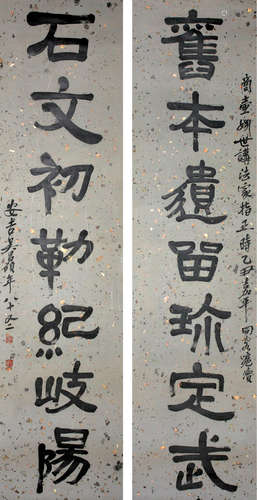 舊本遺留珍定武
姻世講法家指正時乙丑嘉平同客滬瀆
石文初勒紀岐陽
安吉吳昌碩年八十又二